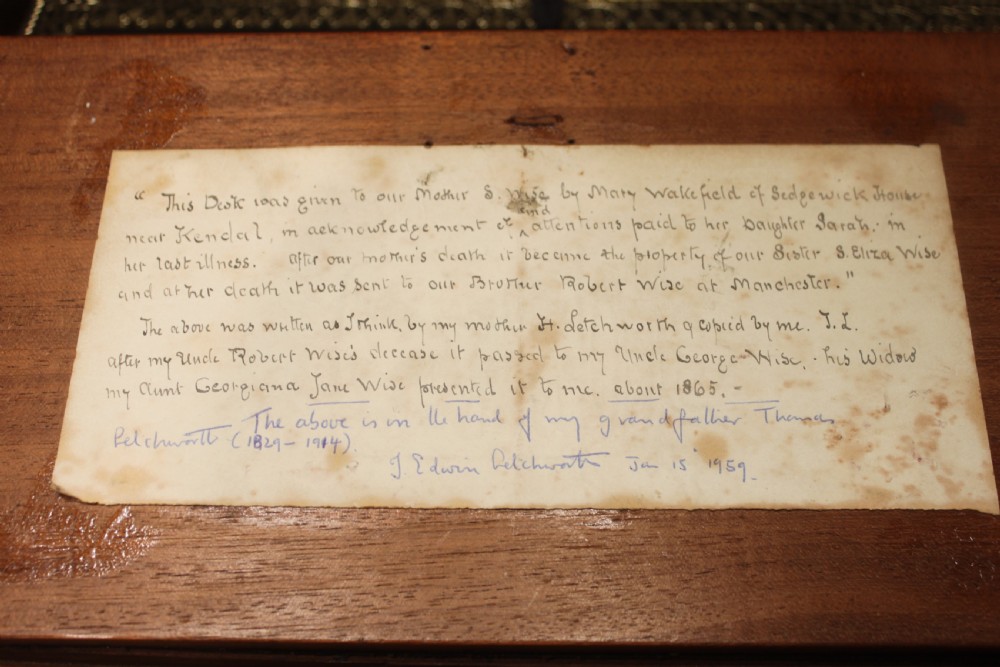 “ This Desk was given to our Mother S. Wise by Mary Wakefield of Sedgewick House
near Kendal, in acknowledgement of kind attentions paid to her Daughter Sarah. in
her last illness. After our mother's death it became the property of our Sister S. Eliza Wise
and at her death it was sent to our Brother Robert Wise at Manchester.”
The above was written as I think, by my mother H. Letchworth & copied by me. T. L.
after my Uncle Robert Wise's decease it passed to my Uncle George Wise. his Widow
my Aunt Georgiana Jane Wise presented it to me. about 1865. -
The above is in the hand of my grandfather Thomas
Letchworth (1829 - 1914).
J. Edwin Letchworth Jan 15 1959.